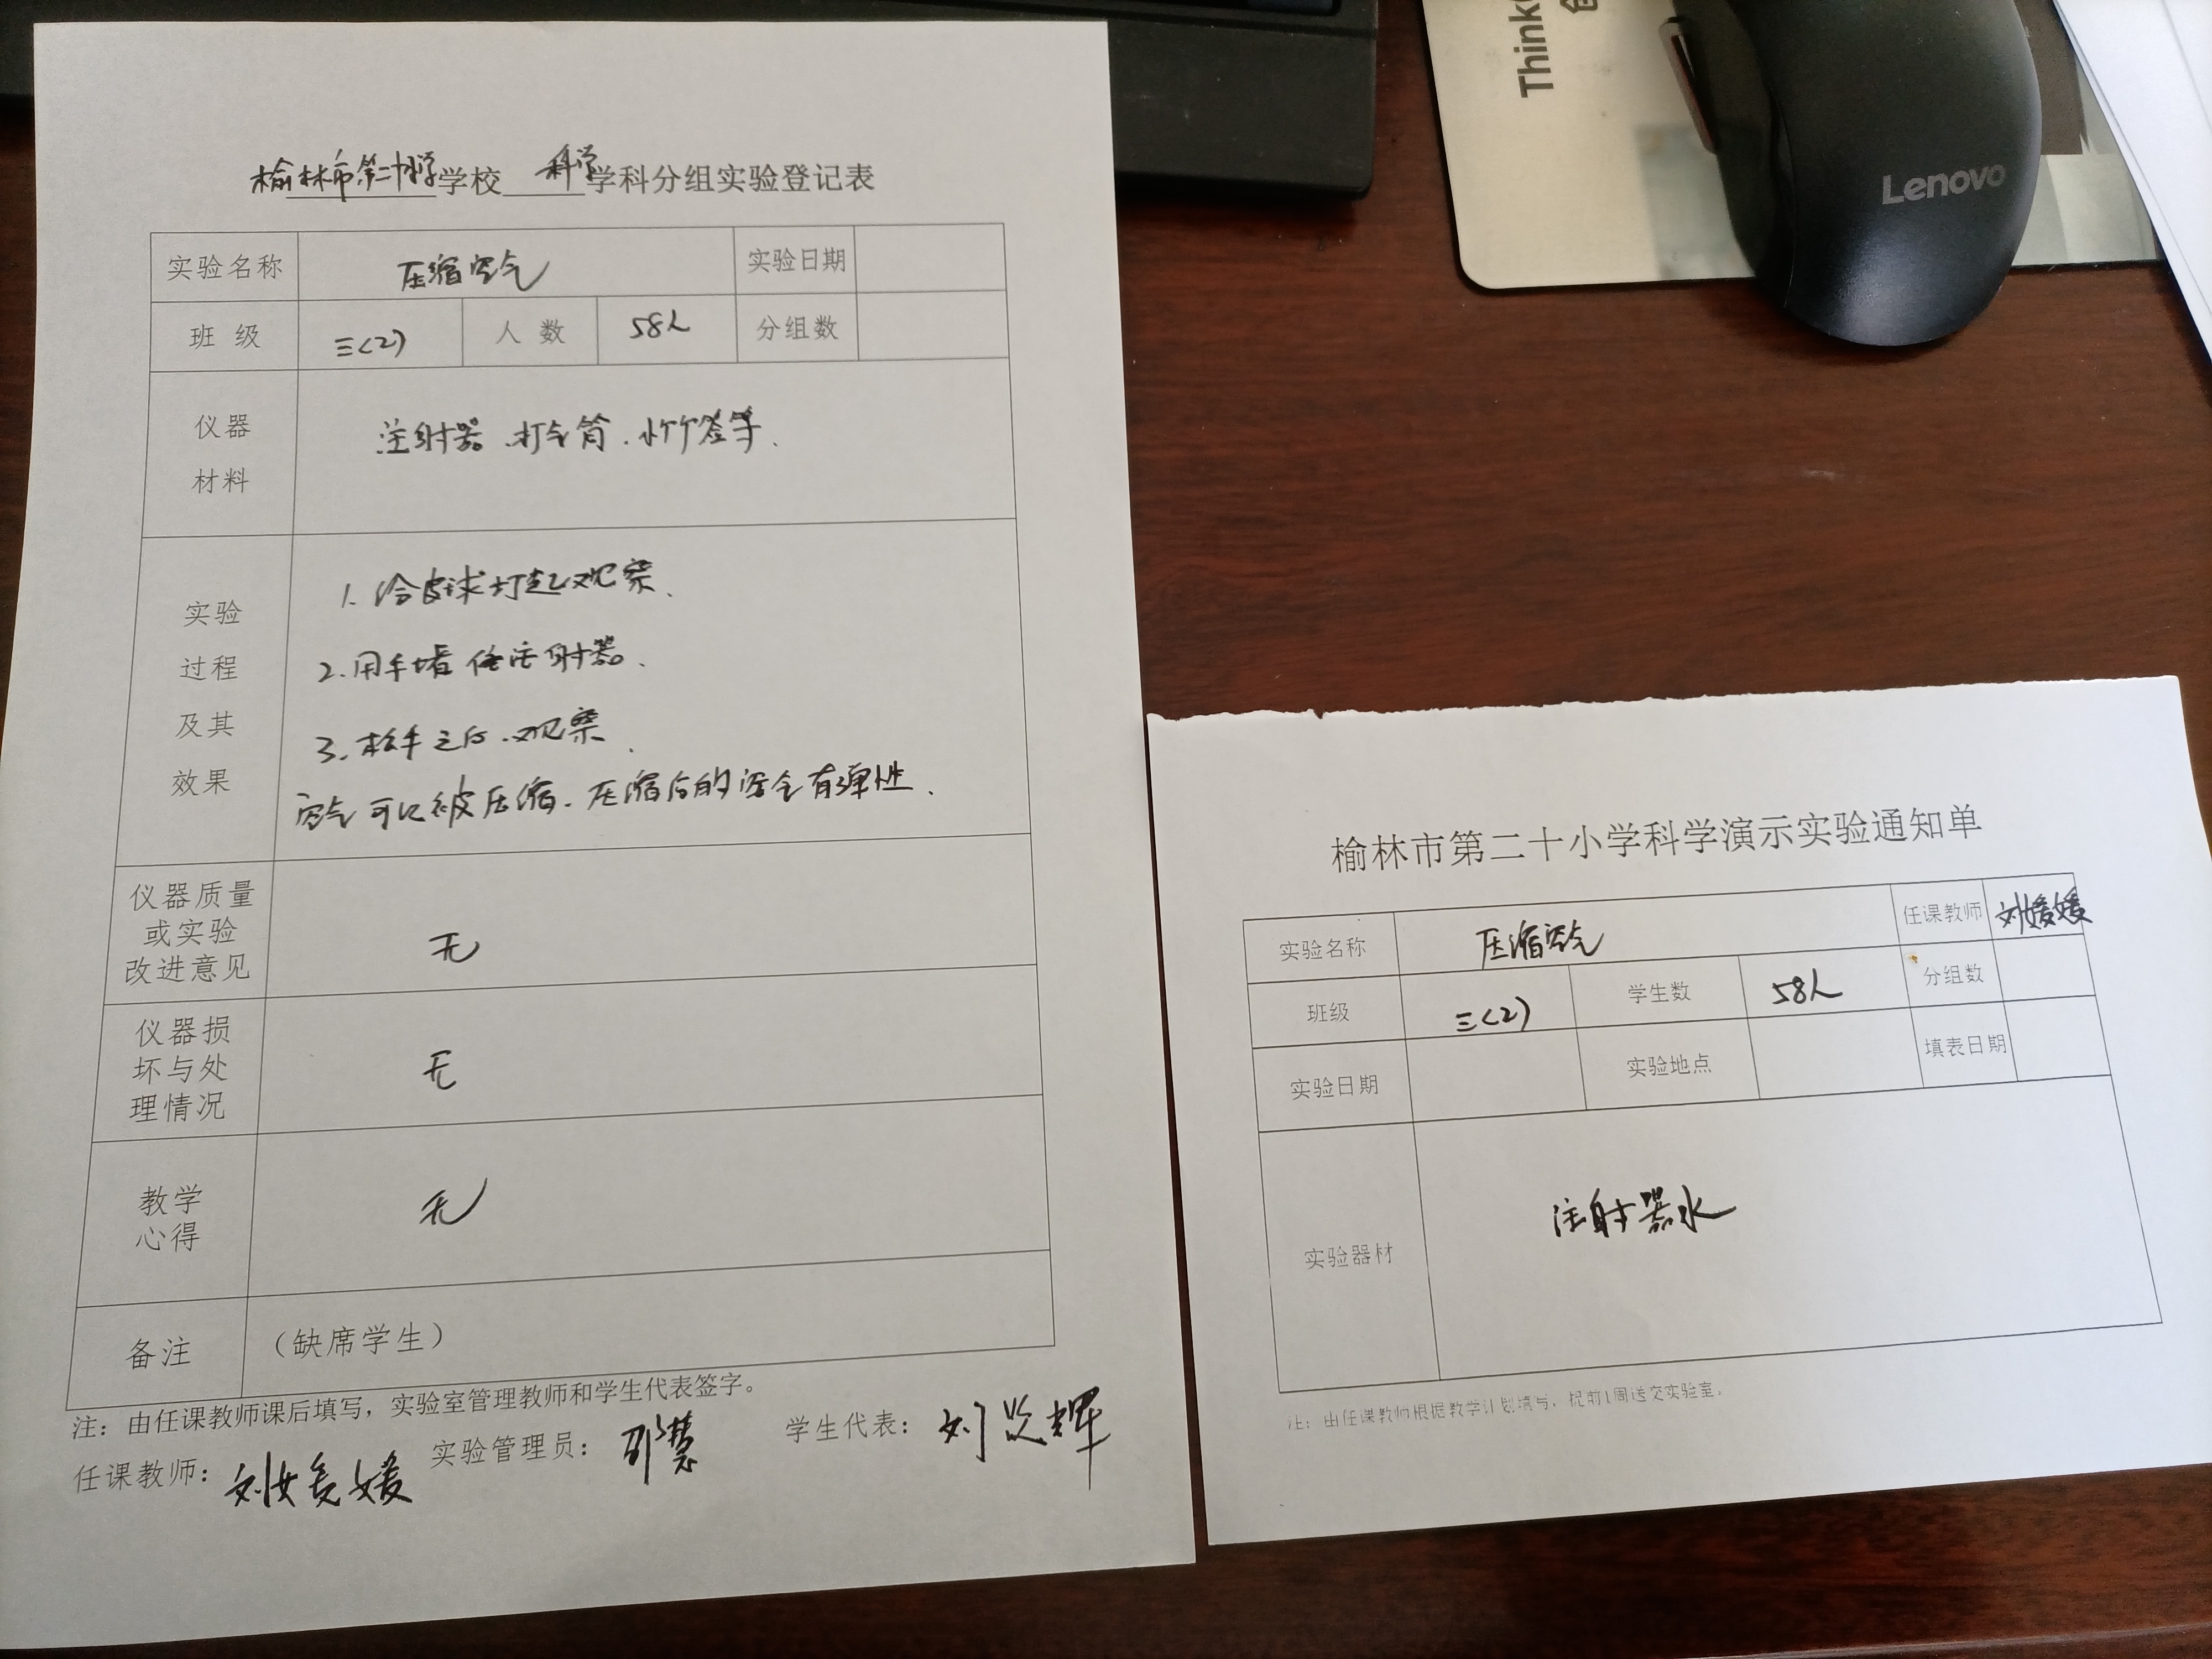 榆林市第二十小学学校 科学学科分组实验登记表
实验名称 压缩空气 实验日期
班 级 三(2) 人 数 58人 分组数
仪器
材料
注射器、打气筒、小竹签等、
实验
过程
及其
效果
1. 给皮球打起观察、
2. 用手堵住注射器、
3. 松手之后、观察、
空气可以被压缩、压缩后的空气有弹性、
仪器质量
或实验
改进意见
无
仪器损
坏与处
理情况
无
教学
心得
无
备注 （缺席学生）
注：由任课教师课后填写，实验室管理教师和学生代表签字。
任课教师：刘媛媛 实验管理员：邵慧 学生代表：刘
榆林市第二十小学科学演示实验通知单
实验名称 压缩空气 任课教师 刘媛媛
班级 三(2) 学生数 58人 分组数
实验日期 实验地点 填表日期
实验器材 注射器水
注：由任课教师根据教学计划填写，提前1周送交实验室。
Think
Lenovo